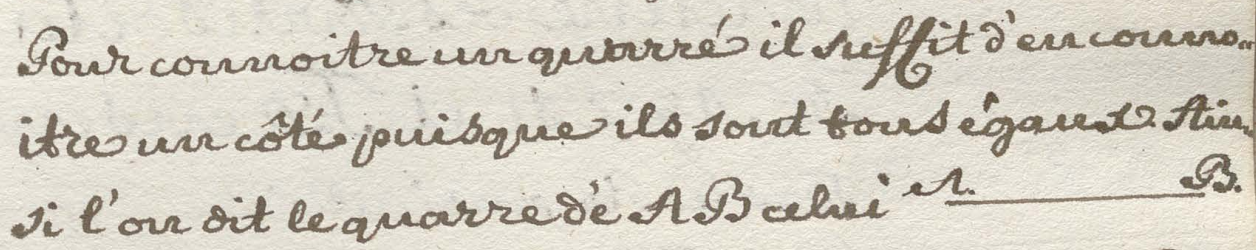 Pour connoitre un quarré il suffit d'en conno-
itre un côté puisque ils sont tous égaux. Ain-
si l'on dit le quarre dè A B celui A. B.